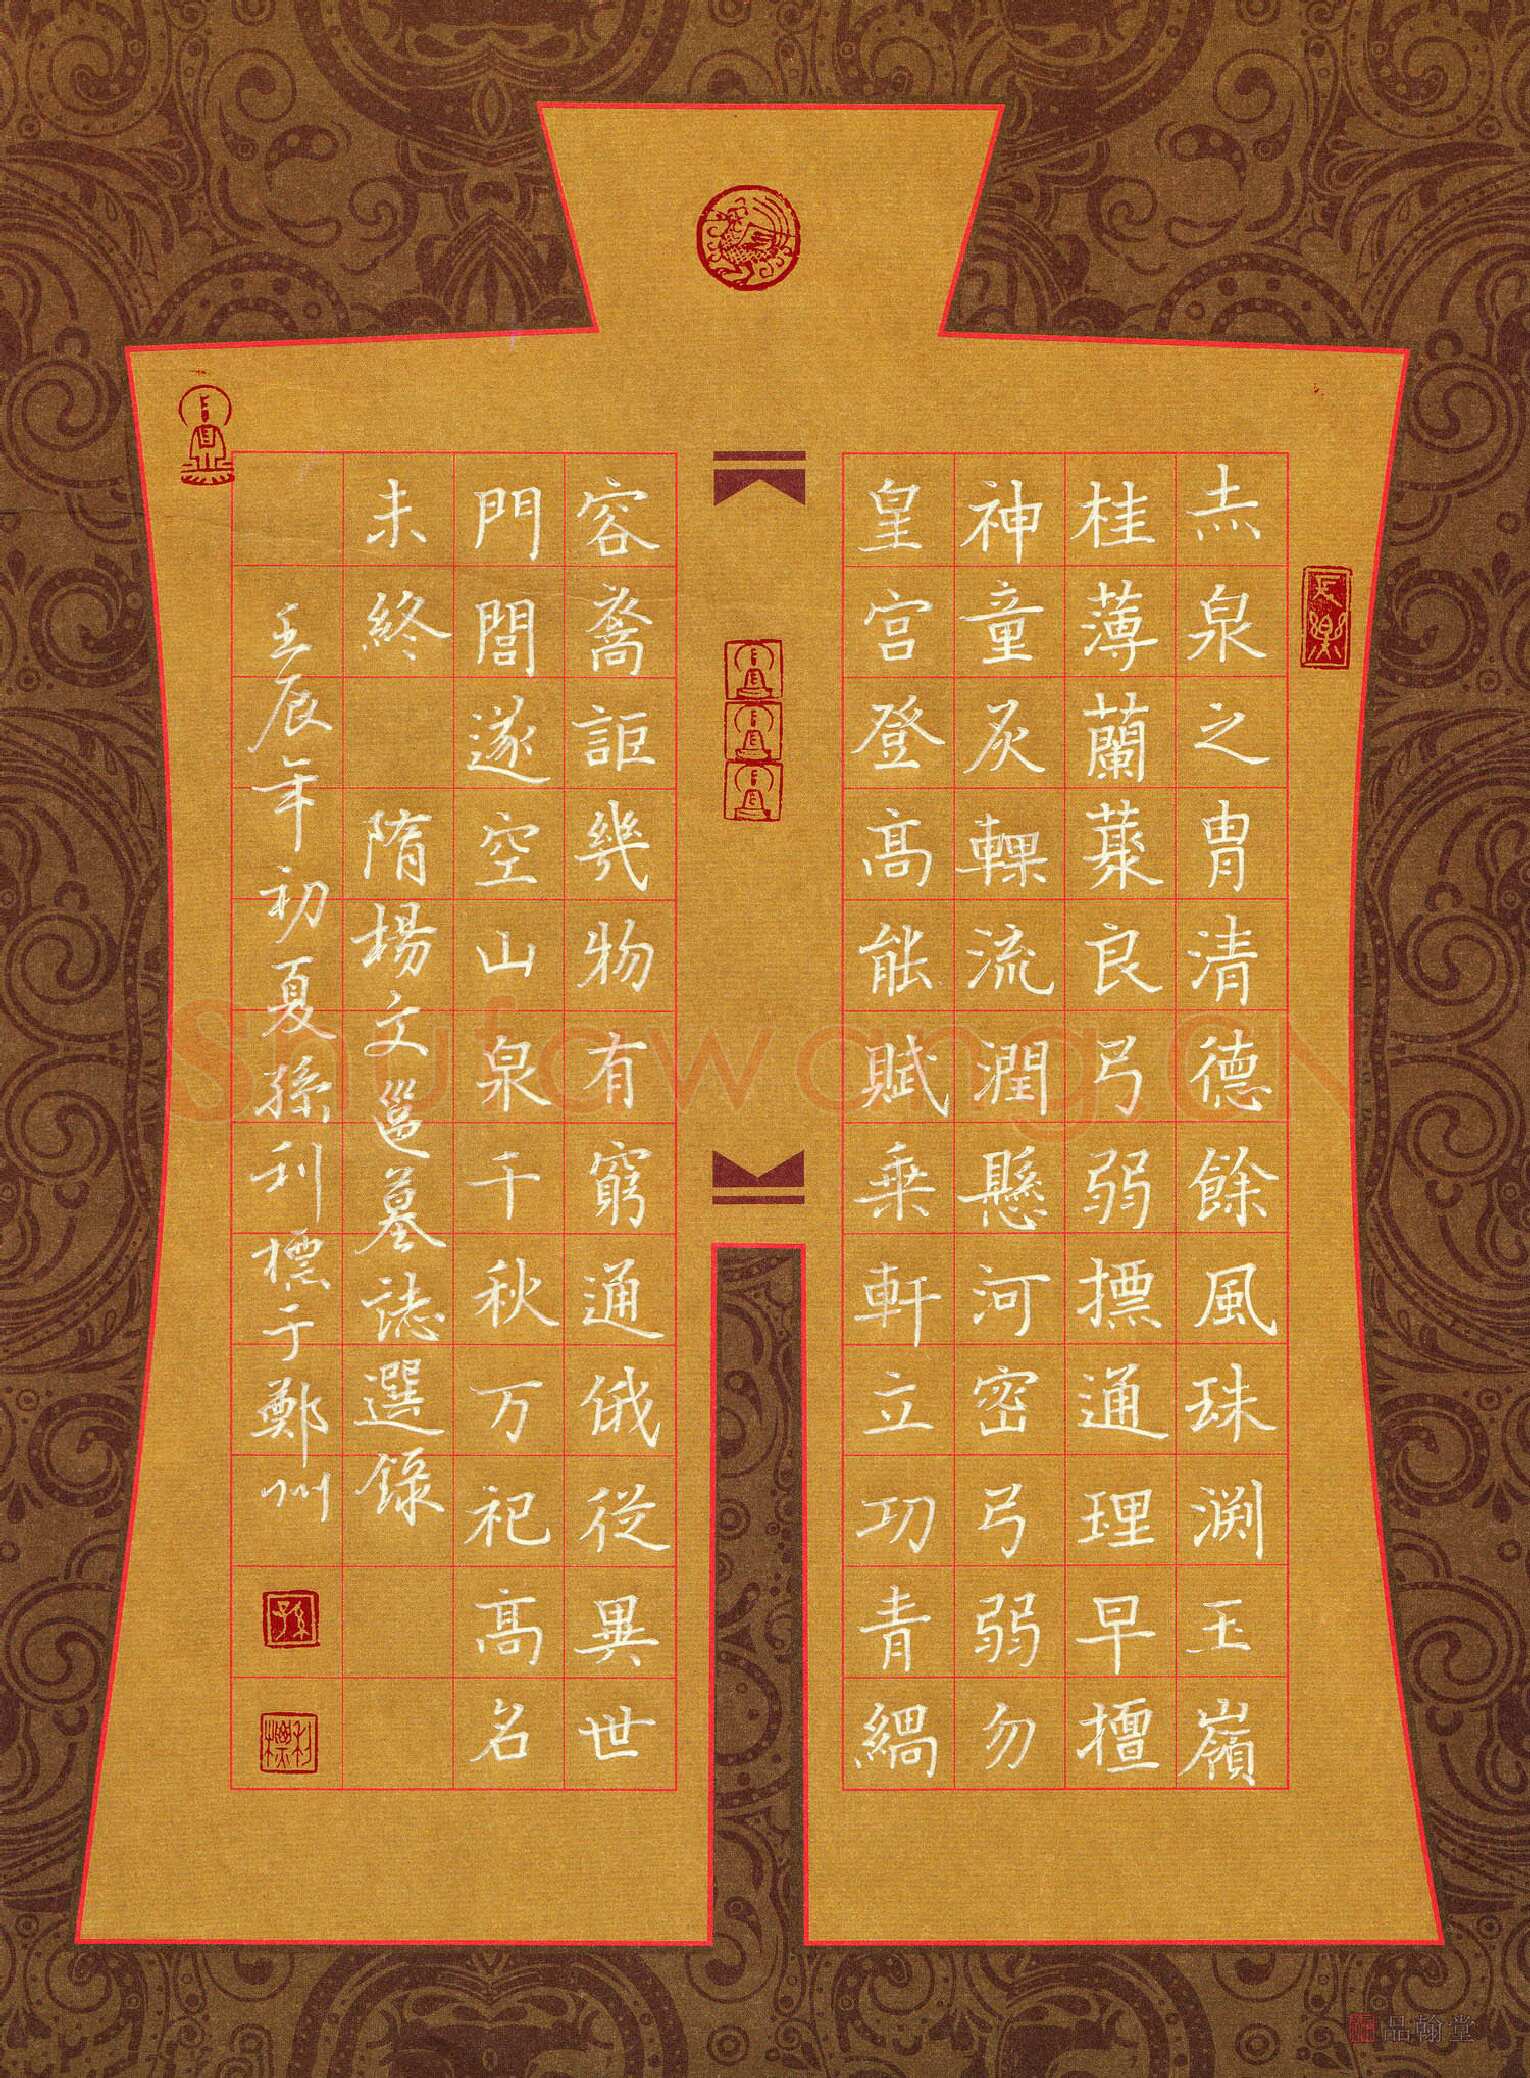 赤泉之胄清德餘風珠渕玉嶺
桂薄蘭藂良弓弱摽通理早擅
神童炙輠流潤懸河密弓弱勿
皇宫登高能賦乗軒立功青緺
容裔詎幾物有窮通俄從異世
門閭遂空山泉千秋万祀高名
未終 隋楊文邕墓誌選錄
壬辰年初夏孫利標于鄭州
長樂
孫
利標
Shufawang.CN
品翰堂